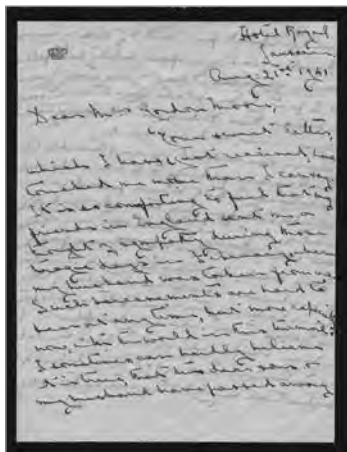 Hotel Royal
Lausanne
Aug 21st 1961
Dear Mrs Gordon Moore,
Your letter,
which I have just received, has
touched me more than I can say.
It is so comforting to feel that my
friends in England sent me a
thought of sympathy during those
tragic days in when
my husband was taken from me.
Such bereavements are hard to
bear at any time, but more
now, when the world is in turmoil.
I sometimes can hardly believe
it is true, that his dear
my husband have passed away